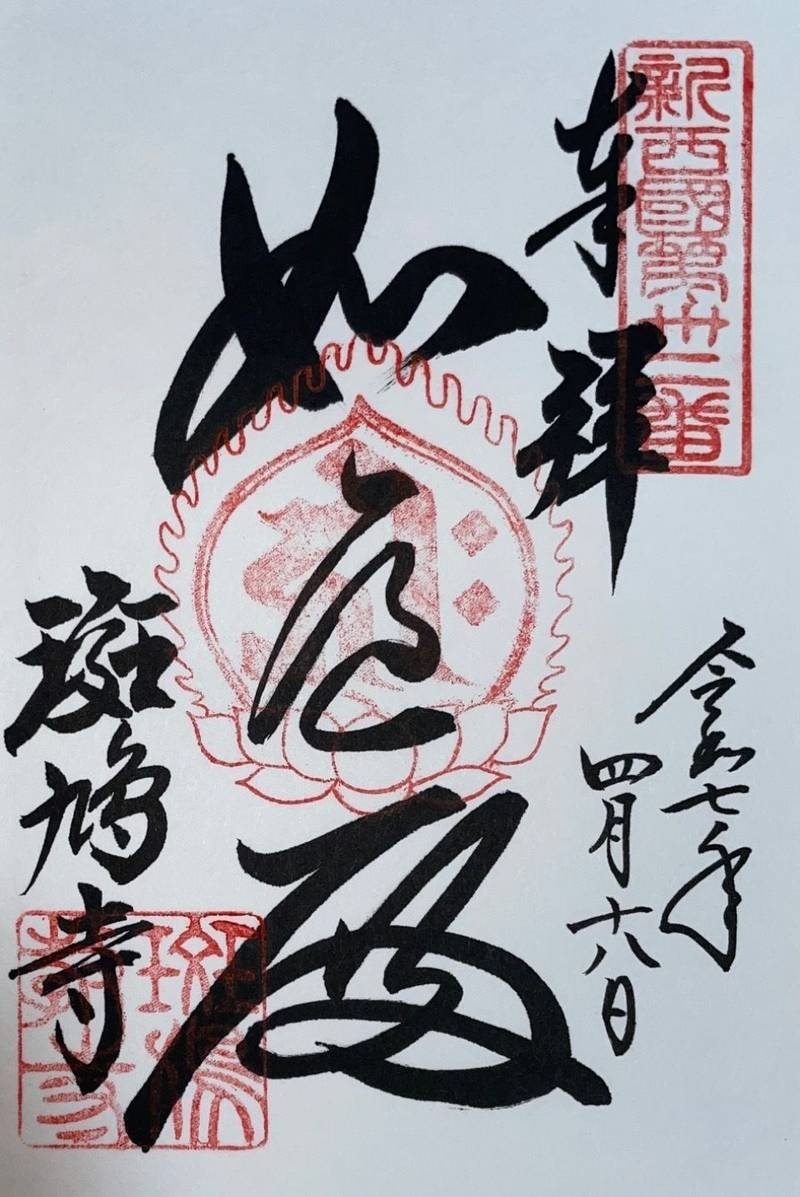 新西國第卅二番
奉拝
令和七年
四月十八日
如意殿
斑鳩寺
斑鳩寺印